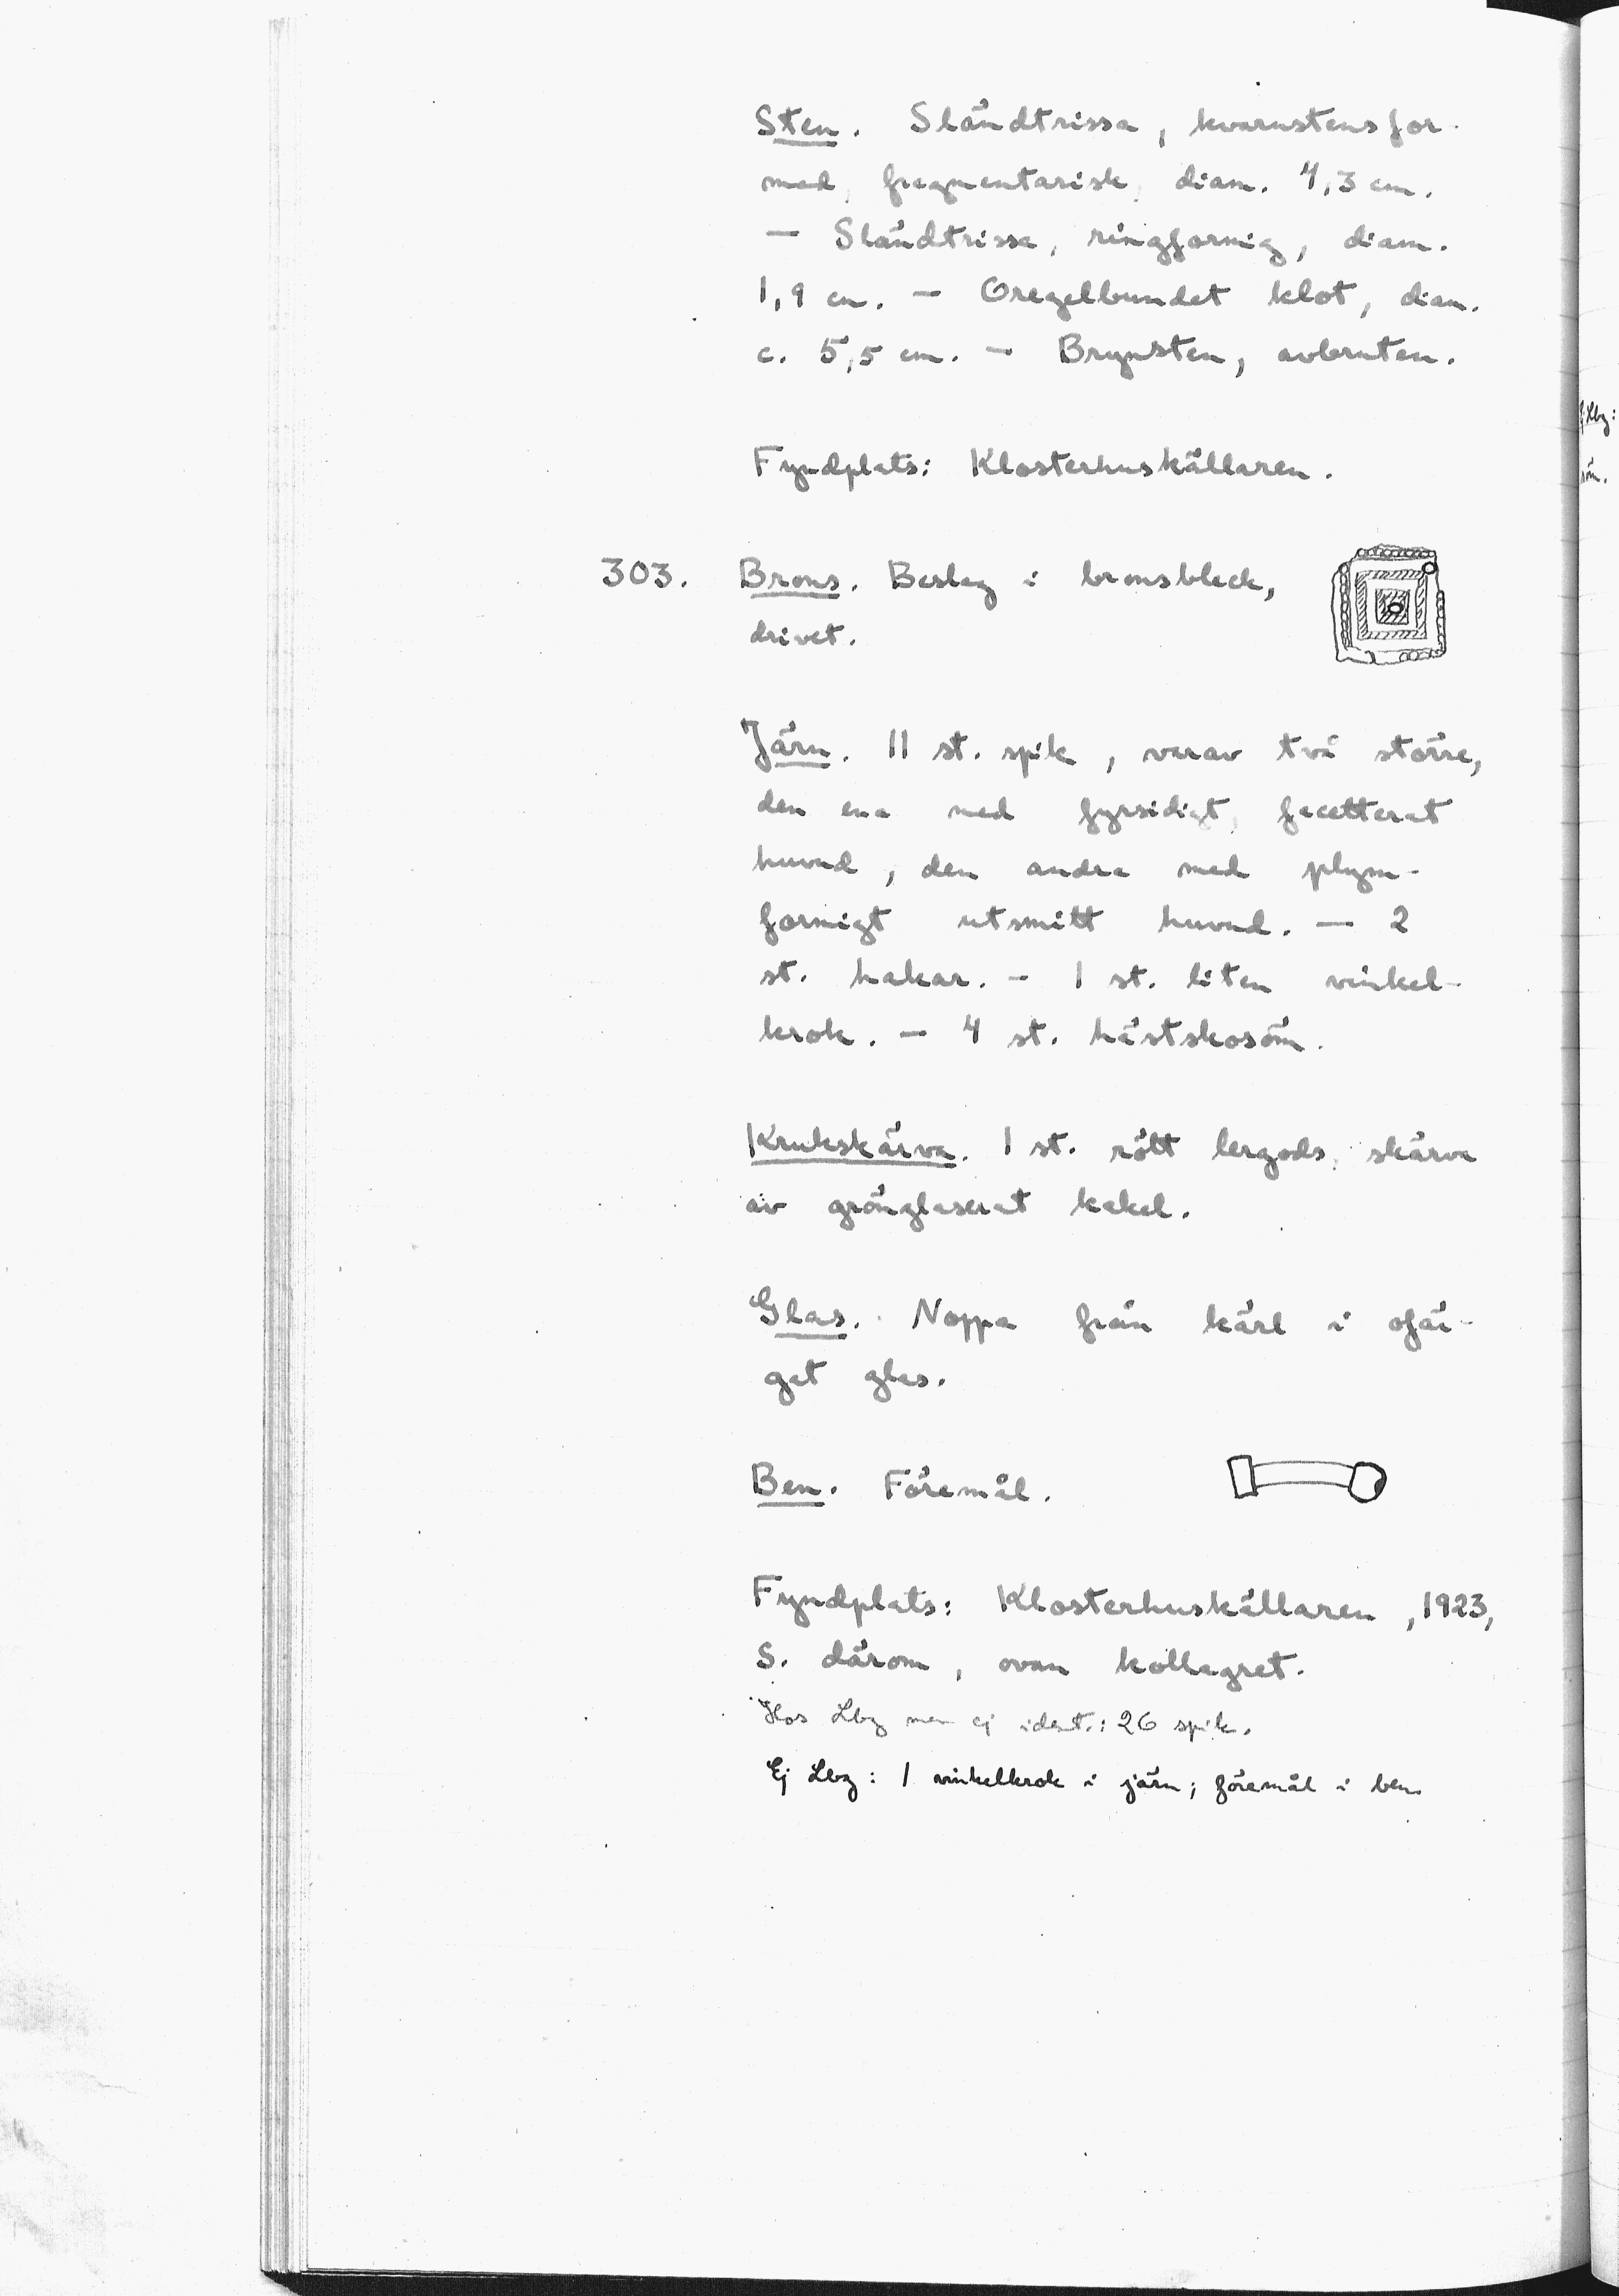 Sten. Sländtrissa, kvarnstensfor-
mad, fragmentarisk, diam. 4,3 cm.
— Sländtrissa, ringformig, diam.
1,9 cm. — Oregelbundet klot, diam.
c. 5,5 cm. — Brynsten, avbruten.
Fyndplats: Klosterhuskällaren.
303. Brons. Beslag i bronsbleck,
drivet.
Järn. 11 st. spik, varav två större,
den ena med fyrsidigt, facetterat
huvud, den andra med plym-
formigt utsmitt huvud. — 2
st. hakar. — 1 st. liten vinkel-
krok. — 4 st. hästskosöm.
Krukskärva. 1 st. rött lergods, skärva
av grönglaserat kakel.
Glas. Noppa från kärl i ofär-
gat glas.
Ben. Föremål.
Fyndplats: Klosterhuskällaren, 1923,
S. därom, ovan kollagret.
Hos Lbg men ej ident.: 26 spik.
Ej Lbg: 1 vinkelkrok i järn; föremål i ben.
Lbg:
söm.